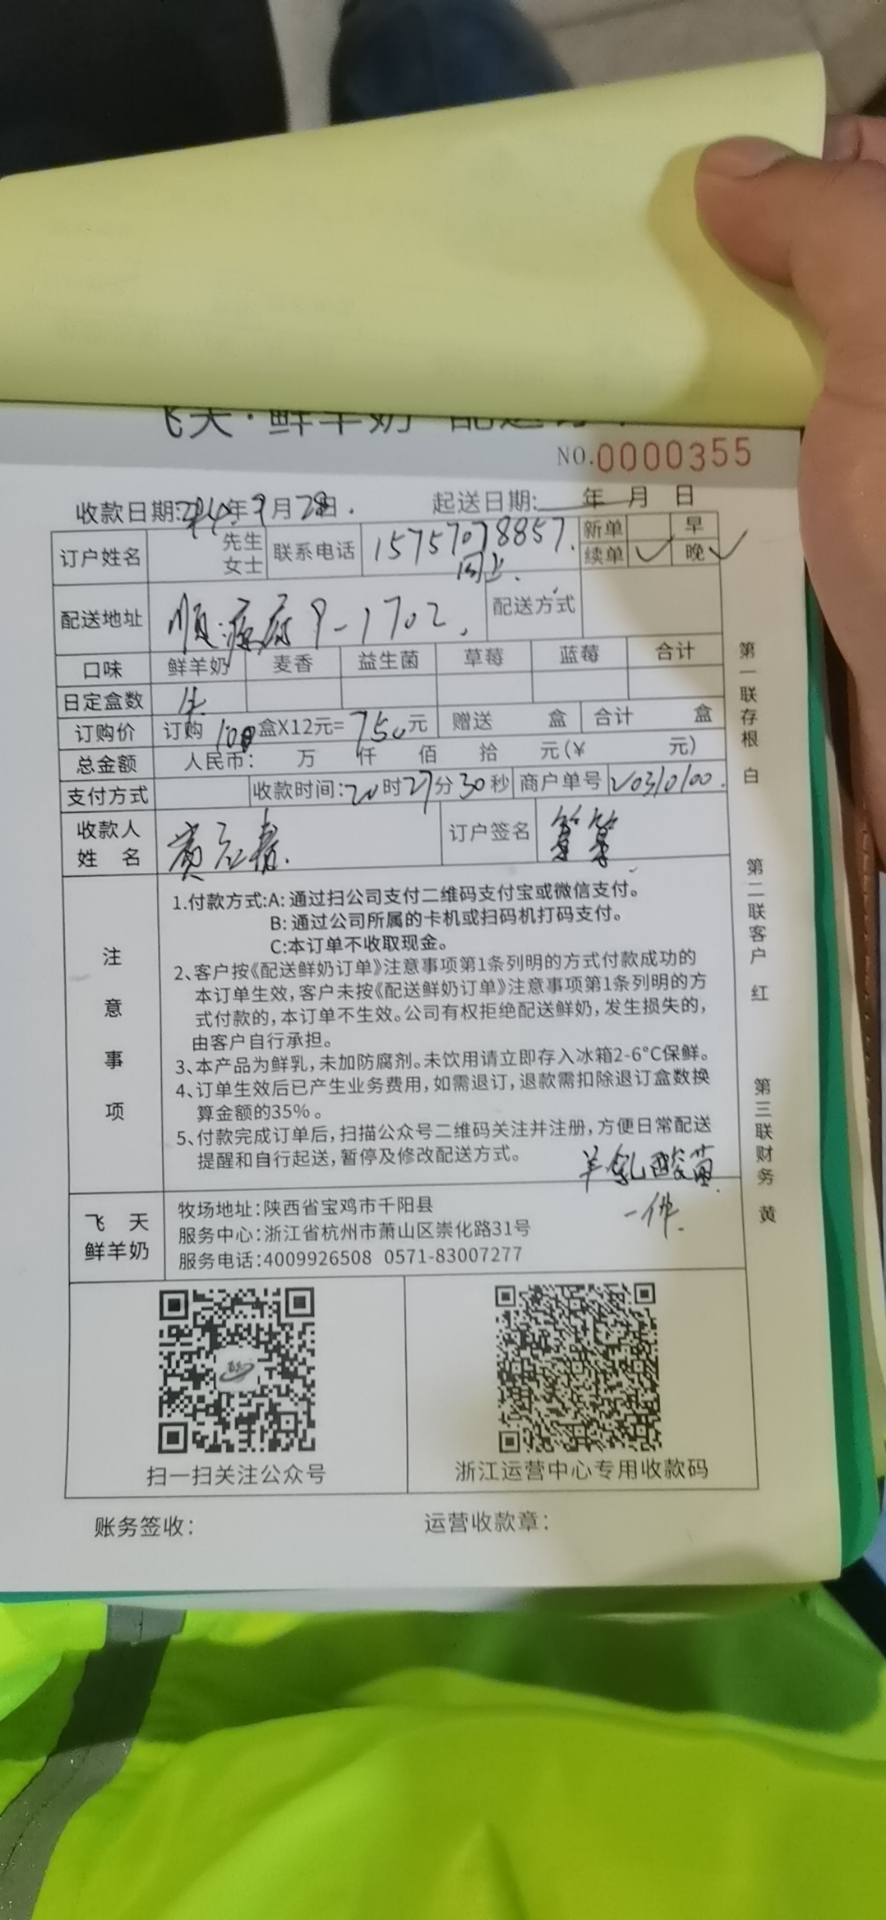 飞天·鲜羊奶 配送订单
NO.0000355
收款日期: 年9月28日. 起送日期: 年 月 日
订户姓名 先生 女士 联系电话 15757078857. 新单 早
同上. 续单✓ 晚✓
配送地址 顺 府9-1702. 配送方式
口味 鲜羊奶 麦香 益生菌 草莓 蓝莓 合计
日定盒数
订购价 订购 100 盒X12元=750元 赠送 盒 合计 盒
总金额 人民币: 万 仟 佰 拾 元(¥ 元)
支付方式 收款时间:20时27分30秒 商户单号 20310100.
收款人姓名 黄 春. 订户签名
注意事项
1.付款方式:A:通过扫公司支付二维码支付宝或微信支付。
B:通过公司所属的卡机或扫码机打码支付。
C:本订单不收取现金。
2、客户按《配送鲜奶订单》注意事项第1条列明的方式付款成功的
本订单生效,客户未按《配送鲜奶订单》注意事项第1条列明的方
式付款的,本订单不生效。公司有权拒绝配送鲜奶,发生损失的,
由客户自行承担。
3、本产品为鲜乳,未加防腐剂。未饮用请立即存入冰箱2-6°C保鲜。
4、订单生效后已产生业务费用,如需退订,退款需扣除退订盒数换
算金额的35%。
5、付款完成订单后,扫描公众号二维码关注并注册,方便日常配送
提醒和自行起送,暂停及修改配送方式。
羊乳酸菌
一件.
飞天鲜羊奶
牧场地址:陕西省宝鸡市千阳县
服务中心:浙江省杭州市萧山区崇化路31号
服务电话:4009926508 0571-83007277
扫一扫关注公众号 浙江运营中心专用收款码
账务签收: 运营收款章:
第一联存根 白
第二联客户 红
第三联财务 黄